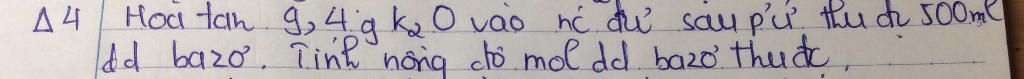 Δ4 Hoà tan 9,4g k₂O vào nc dư sau pư thu dc 500ml
dd bazơ. Tính nồng độ mol dd bazơ thu dc.